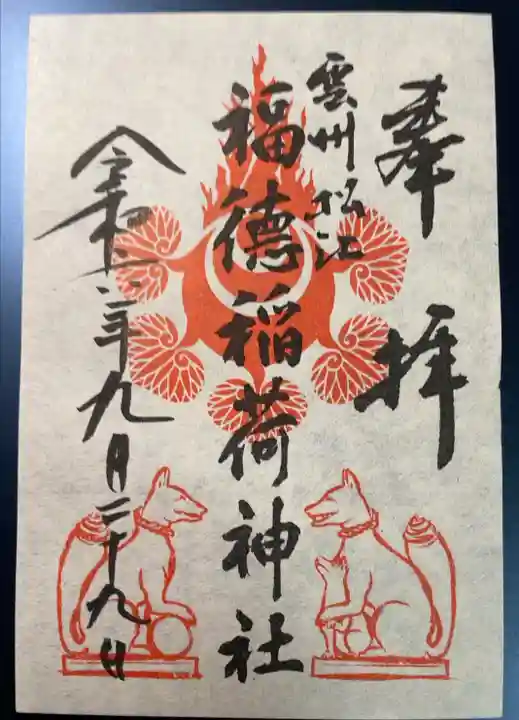 奉拝
雲州松江
福徳稲荷神社
令和六年九月二十九日